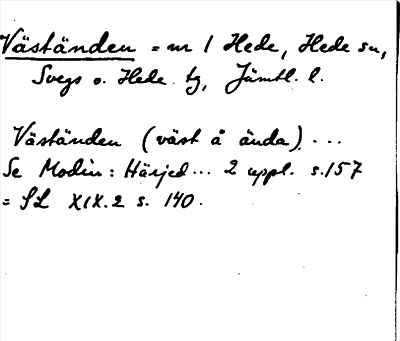 Väständen = m / Hede, Hede sn,
Svegs o. Hede tg, Jämtl. l.
Väständen (väst å ända) ...
Se Modin: Härjed... 2 uppl. s.157
= SL XIX.2 s. 140.